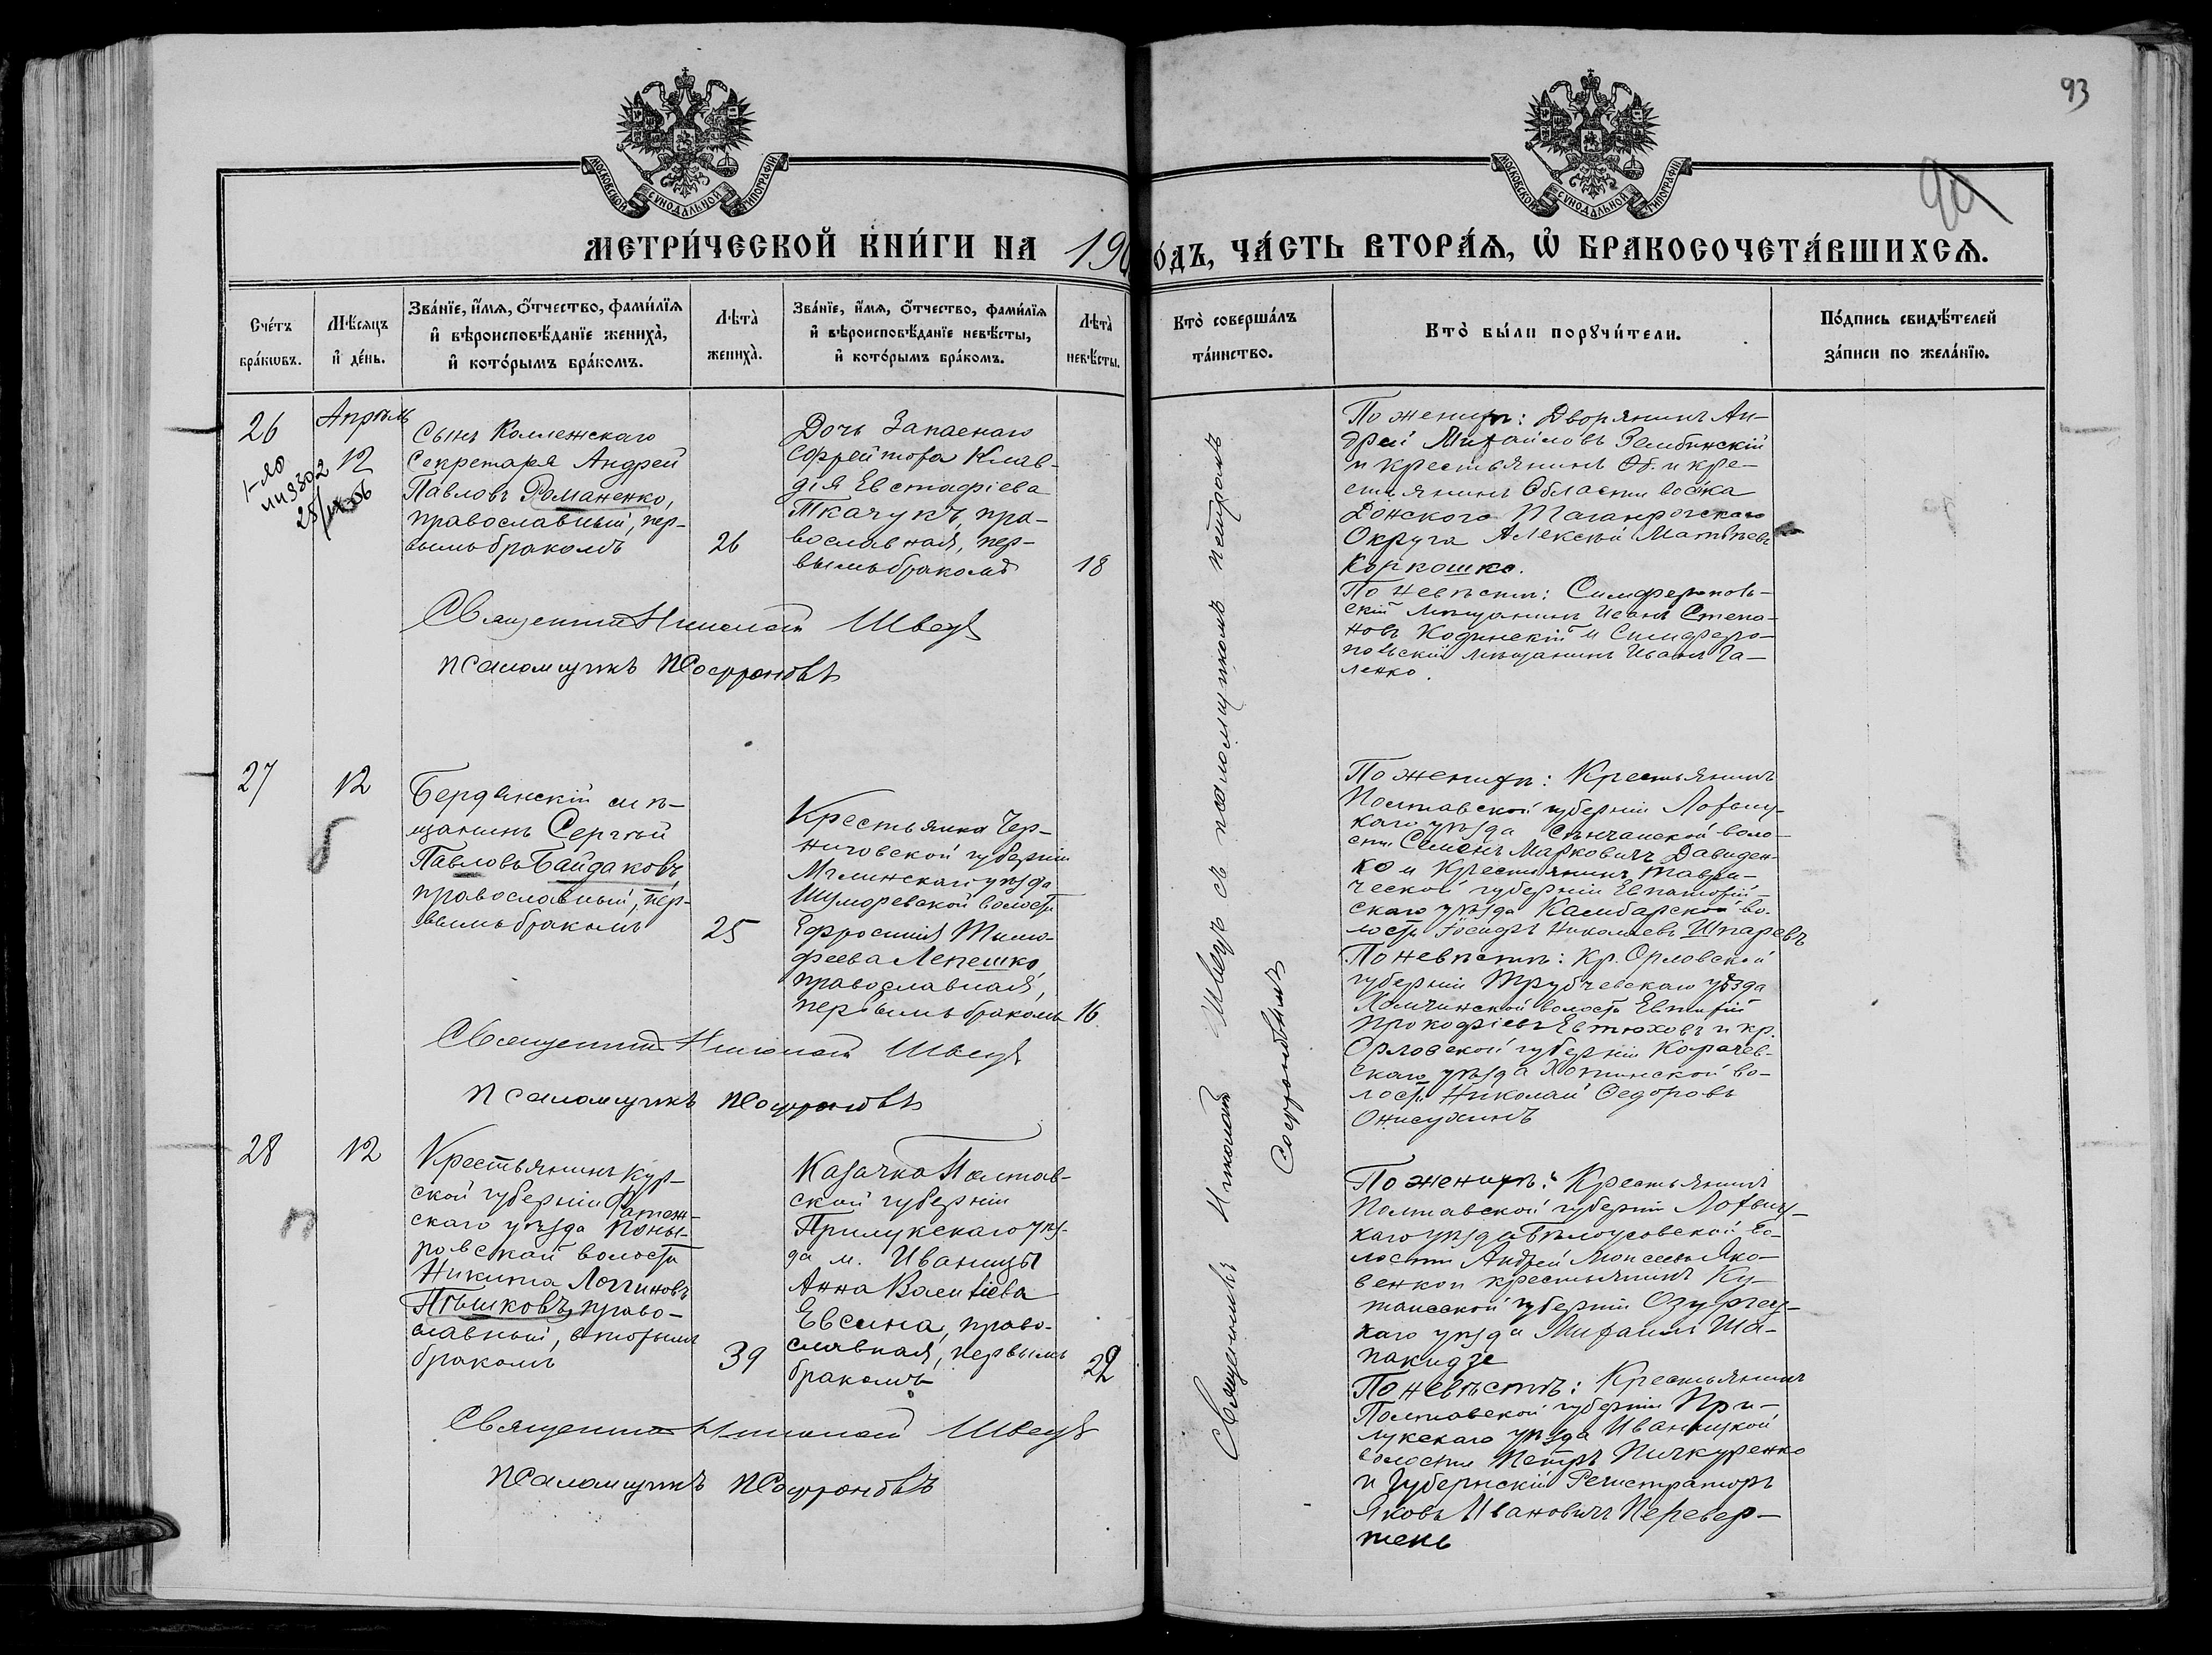 93
90
МОСКОВСКОЙ СУНОДАЛЬНОЙ ТИПОГРАФІИ
МОСКОВСКОЙ СУНОДАЛЬНОЙ ТИПОГРАФІИ
МЕТРИ́ЧЕСКОЙ КНИ́ГИ НА 190
О́ДЪ, ЧА́СТЬ ВТОРА́Я, Ѡ БРАКОСОЧЕТА́ВШИХСЯ.
Сче́тъ бра́кѡвъ.
Мѣ́сяцъ и҆ де́нь.
Зва́нїе, и҆́мя, ѻ҆́тчество, фами́лїя
и҆ вѣроисповѣ́данїе жениха̀,
и҆ кото́рымъ бра́комъ.
Лѣта̀ жениха̀.
Зва́нїе, и҆́мя, ѻ҆́тчество, фами́лїя
и҆ вѣроисповѣ́данїе невѣ́сты,
и҆ кото́рымъ бра́комъ.
Лѣта̀ невѣ́сты.
Кто̀ соверша́лъ та́инство.
Кто̀ бы́ли порꙋчи́тели.
По́дпись свидѣ́телей за́писи по жела́нїю.
26
Апрѣль
12
Сынъ Коллежскаго
Секретаря Андрей
Павловъ Романенко,
православный, пер-
вымъ бракомъ
26
Дочь Запаснаго
Ефрейтора Клав-
дія Евстафіева
Ткачукъ, пра-
вославная, пер-
вымъ бракомъ
18
Священникъ Николай Швецъ
псаломщикъ ПСофроновъ
По женихѣ: Дворянинъ Ан-
дрей Михайловъ Зембинскій
и крестьянинъ Об. и кре-
стьянинъ Области войска
Донского Таганрогскаго
Округа Алексѣй Матвѣевъ
Коркошко.
По невѣстѣ: Симферополь-
скій мѣщанинъ Иванъ Степа-
новъ Кодинскій и Симферо-
польскій мѣщанинъ Иванъ Га-
ленко.
27
12
Бердянскій мѣ-
щанинъ Сергѣй
Павловъ Байдаковъ,
православный, пер-
вымъ бракомъ
25
Крестьянка Чер-
ниговской губерніи
Мглинскаго уѣзда
Шуморовской волости
Ефросинія Тимо-
феева Лепешко
православная,
первымъ бракомъ
16
Священникъ Николай Швецъ
псаломщикъ ПСофроновъ
По женихѣ: Крестьянинъ
Полтавской губерніи Лохвиц-
каго уѣзда Сѣнчанской воло-
сти Семенъ Марковичъ Давиден-
ко и Крестьянинъ Таври-
ческой губерніи Евпаторій-
скаго уѣзда Камбарской во-
лости Іосифъ Николаевъ Шпаревъ
По невѣстѣ: Кр. Орловской
губерніи Трубчевскаго уѣзда
волости Евтифій
Прокофіевъ Евтюховъ и кр.
Орловской губерніи Карачев-
скаго уѣзда Хотинской во-
лости Николай Федоровъ
Онисухинъ
28
12
Крестьянинъ Кур-
ской губерніи Фатеж-
скаго уѣзда Поны-
ровской волости
Никита Логгиновъ
Пѣшковъ, право-
славный, вторымъ
бракомъ
39
Казачка Полтав-
ской губерніи
Прилукскаго уѣз-
да м. Иваницы
Анна Васильева
Евсина, право-
славная, первымъ
бракомъ
29
Священникъ Николай Швецъ
псаломщикъ ПСофроновъ
По женихѣ: Крестьянинъ
Полтавской губерніи Лохвиц-
каго уѣзда Бѣлоусовской во-
лости Андрей Моисеевъ Яко-
венко и крестьянинъ Ку-
таисской губерніи Озургец-
каго уѣзда Михаилъ Ша-
пакидзе
По невѣстѣ: Крестьянинъ
Полтавской губерніи При-
лукскаго уѣзда Иваницкой
волости Петръ Пичкуренко
и Губернскій Регистраторъ
Яковъ Ивановичъ Перевер-
тень
Священникъ Николай Швецъ съ псаломщикомъ Петромъ
Софроновымъ